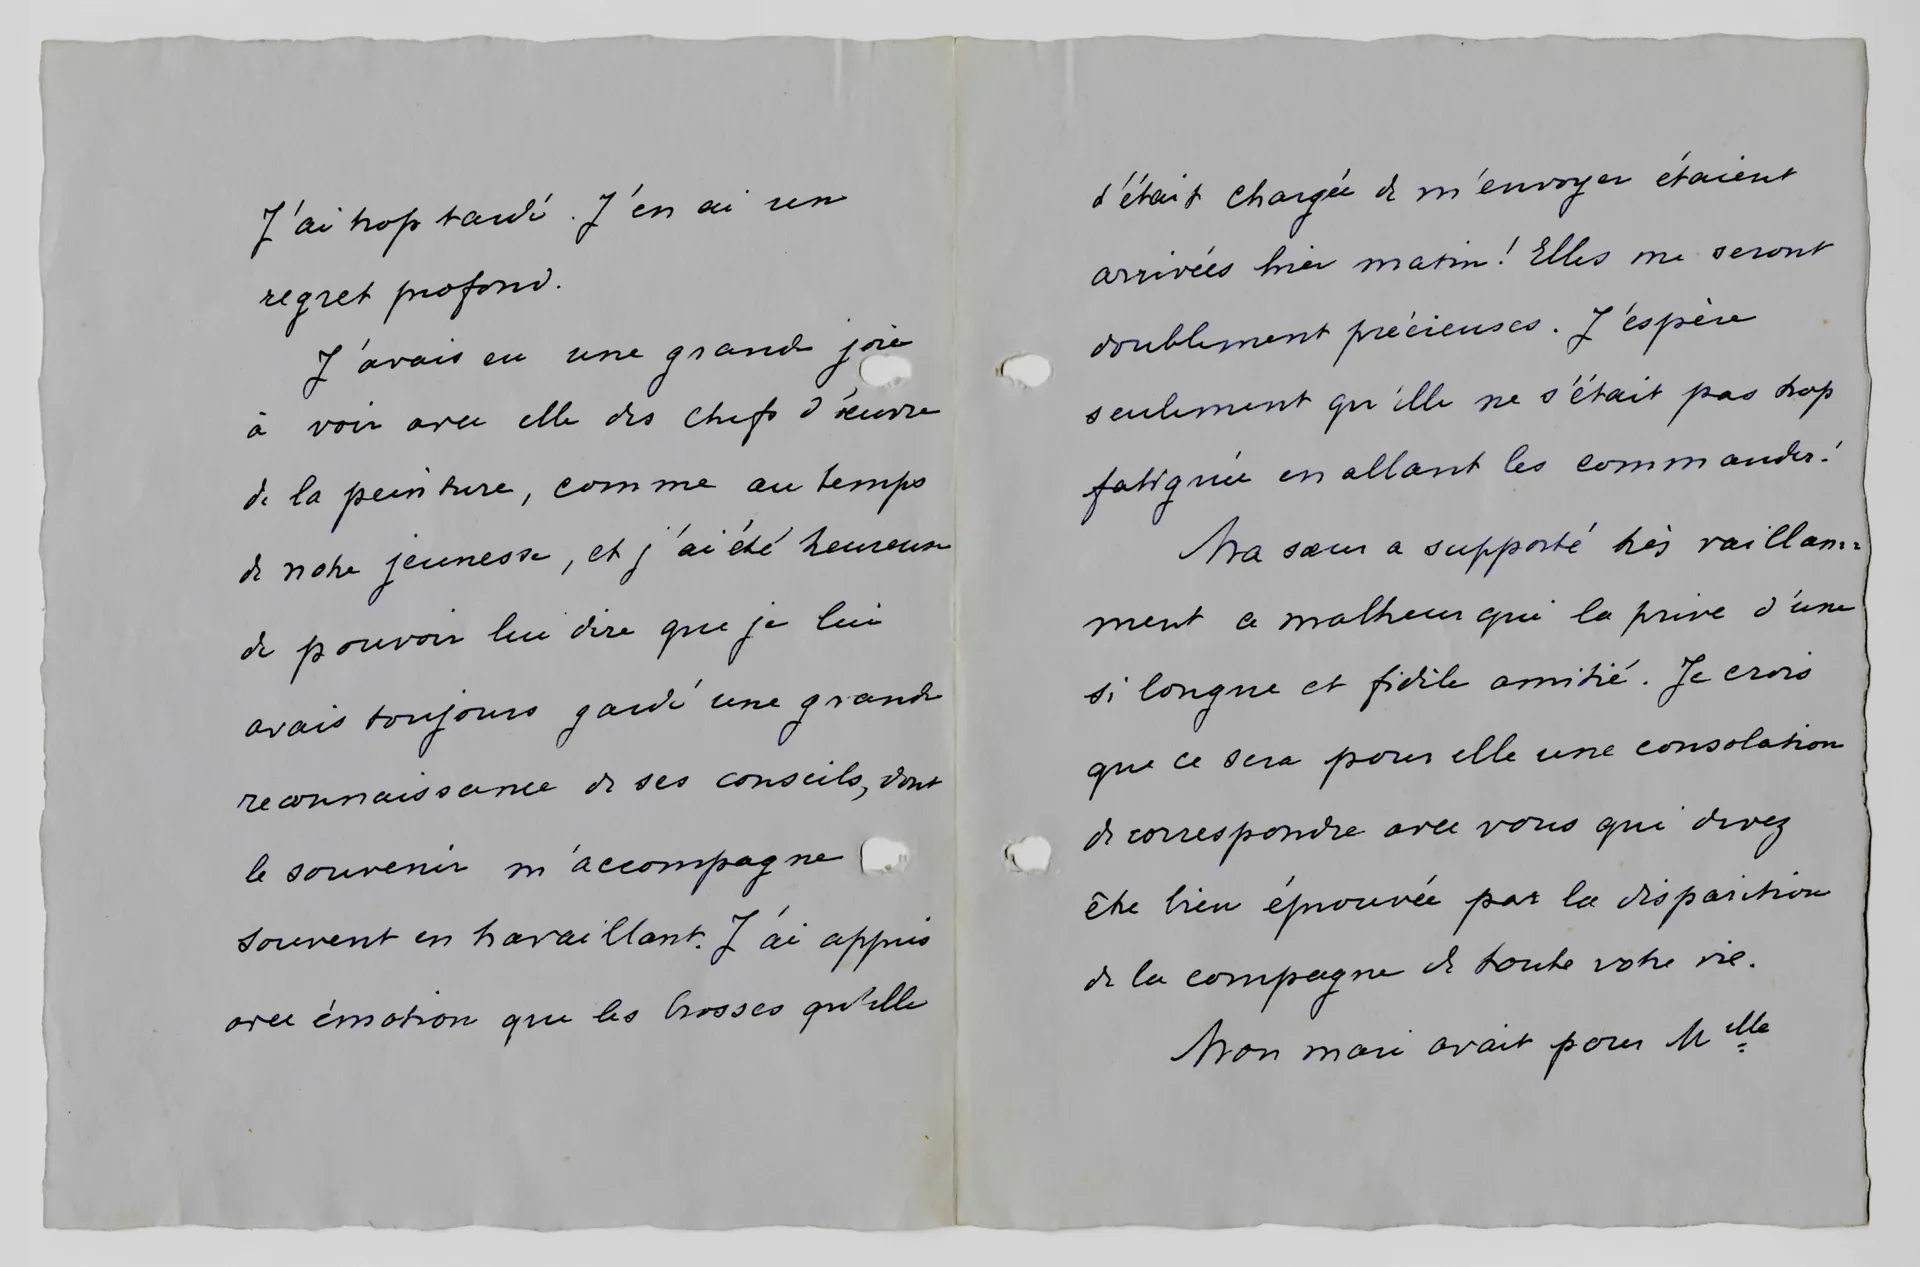 J'ai trop tardé. J'en ai un
regret profond.
J'avais eu une grande joie
à voir avec elle des chefs d'œuvre
de la peinture, comme au temps
de notre jeunesse, et j'ai été heureuse
de pouvoir lui dire que je lui
avais toujours gardé une grande
reconnaissance de ses conseils, dont
le souvenir m'accompagne
souvent en travaillant. J'ai appris
avec émotion que les brosses qu'elle
s'était chargée de m'envoyer étaient
arrivées hier matin! Elles me seront
doublement précieuses. J'espère
seulement qu'elle ne s'était pas trop
fatiguée en allant les commander!
Ma sœur a supporté très vaillam=
ment ce malheur qui la prive d'une
si longue et fidèle amitié. Je crois
que ce sera pour elle une consolation
de correspondre avec vous qui devez
être bien éprouvée par la disparition
de la compagne de toute votre vie.
Mon mari avait pour Melle